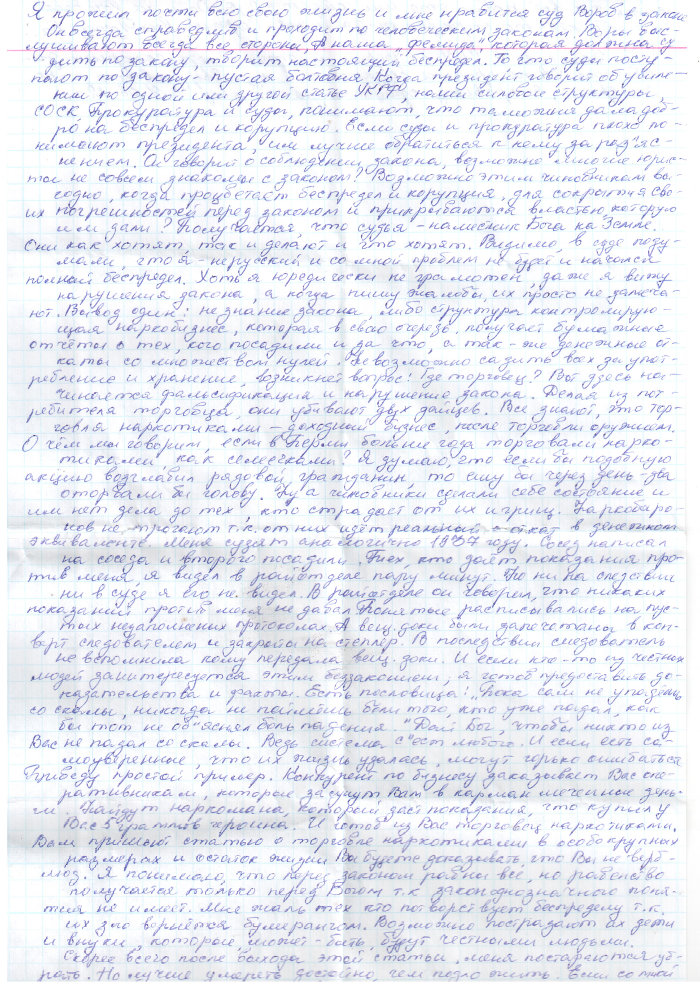 Я прожил почти всю свою жизнь и мне нравится суд Воров в законе
Он всегда справедлив и проходит по человеческим законам. Воры выс-
лушивают всегда все стороны, а наша „фемида", которая должна су-
дить по закону, творит настоящий беспредел. То что суды посту-
пают по закону - пустая болтовня. Когда президент говорит об усиле-
нии по одной или другой статье УКРФ, наши силовые структуры,
Прокуратура и суды, понимают, что таможня дала доб-
ро на беспредел и корупцию. Если суды и прокуратура плохо по-
нимают президента, им лучше обратиться к нему за раз"яс-
нением. Он говорит о соблюдении закона, возможно многие юрис-
ты не совсем знакомы с законом? Возможно этим чиновникам вы-
годно, когда процветает беспредел и корупция, для сокрытия сво-
их погрешностей перед законом и прикрываются властью которую
им дали? Получается, что судья - наместник Бога на Земле.
Они как хотят, так и делают и что хотят. Видимо, в суде поду-
мали, что я - нерусский и со мной проблем не будет и начался
полный беспредел. Хоть я юредически не грамотен, даже я вижу
нарушения закона, а когда пишу жалобы, их просто не замеча-
ют. Вывод один: не знание закона, либо структура контролирую-
щая наркобизнес, которая в свою очередь, получает бумажные
отчёты о тех, кого посадили и за что, а так-же денежные от-
каты со множеством нулей. Невозможно садить всех за упот-
ребление и хранение, возникнет вопрос: Где торговец? Вот здесь на-
чинается фальсификация и нарушение закона. Делая из пот-
ребителя торговца, они убивают двух зайцев. Все знают, что тор-
говля наркотиками - доходный бизнес, после торговли оружием.
О чём мы говорим, если в Перми больше года торговали нарко-
тиками, как семечками? Я думаю, что если бы подобную
акцию возглавил рядовой гражданин, то ему бы через день-два
оторвали бы голову. Ну а чиновники сделали себе состояние и
им нет дела до тех, кто страдает от их игрищ. Наркобаро-
нов не трогают т.к. от них идёт реальный откат в денежном
эквиваленте. Меня судят аналогично 1937 году. Сосед написал
на соседа и второго посадили. Тех, кто даёт показания про-
тив меня, я видел в райотделе пару минут. Но ни на следствии
ни в суде я его не видел. В райотделе он говорил, что никаких
показаний против меня не давал. Понятые расписывались на пус-
тых незаполненых протоколах. А вещ.доки были запечатаны в кон-
верт следователем и закрыты на степлер. В последствии следователь
не вспомнила кому передала вещ.доки. И если кто-то из честных
людей заинтересуется этим беззаконием, я готов предоставить до-
казательства и факты. Есть пословица: „Пока сам не упадёшь
со скалы, никогда не поймёшь боли того, кто уже падал, как
бы тот не об"яснял боль падения." Дай Бог, чтобы никто из
Вас не падал со скалы. Ведь система с"ест любого. И если есть са-
моуверенные, что их жизнь удалась, могут горько ошибаться
Приведу простой пример. Конкурент по бизнесу заказывает Вас опе-
ративникам, которые засунут Вам в карман меченные день-
ги. Найдут наркомана, который даст показания, что купил у
Вас 5 граммов героина. И готов из Вас торговец наркотиками.
Вам пришьют статью о торговле наркотиками в особо крупных
размерах и остаток жизни Вы будете доказывать, что Вы не верб-
люд. Я понимаю, что перед законом равны все, но равенство
получается только перед Богом т.к. закон однозначного поня-
тия не имеет. Мне жаль тех кто потворствует беспределу т.к.
их зло вернётся бумерангом. Возможно пострадают их дети
и внуки, которые, может-быть, будут честными людьми.
Скорее всего после выхода этой статьи, меня постараются уб-
рать. Но лучше умереть достойно, чем подло жить. Если со мной